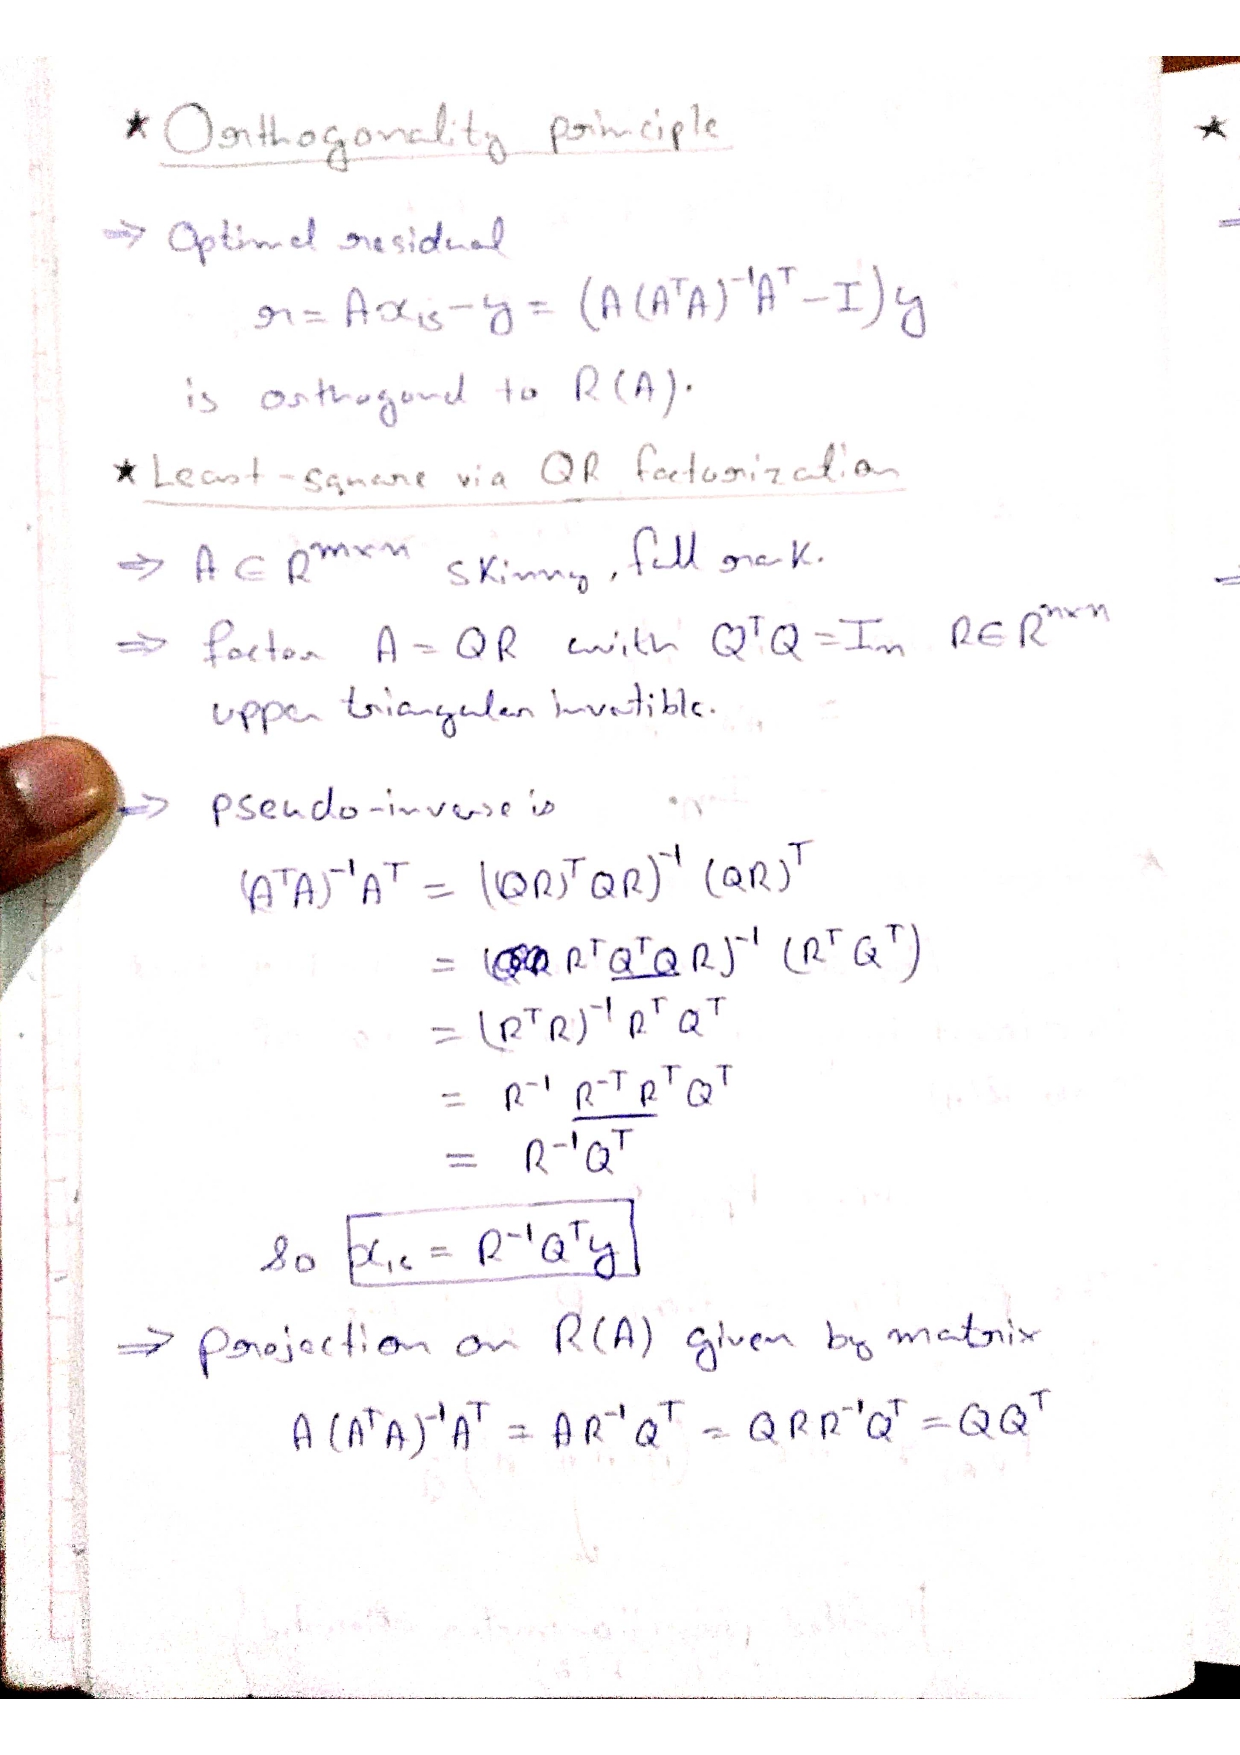 ★ Orthogonality principle
⇒ Optimal residual
r = Ax_ls - y = (A(AᵀA)⁻¹Aᵀ - I)y
is orthogonal to R(A).
★ Least-square via QR factorization
⇒ A ∈ R^{m×n} skinny, full rank.
⇒ factor A = QR with QᵀQ = I_n R ∈ R^{n×n}
upper triangular invertible.
⇒ pseudo-inverse is
(AᵀA)⁻¹Aᵀ = ((QR)ᵀQR)⁻¹ (QR)ᵀ
= (RᵀQᵀQR)⁻¹ (RᵀQᵀ)
= (RᵀR)⁻¹ RᵀQᵀ
= R⁻¹ R⁻ᵀRᵀQᵀ
= R⁻¹Qᵀ
So x_ls = R⁻¹Qᵀy
⇒ projection on R(A) given by matrix
A(AᵀA)⁻¹Aᵀ = AR⁻¹Qᵀ = QRR⁻¹Qᵀ = QQᵀ